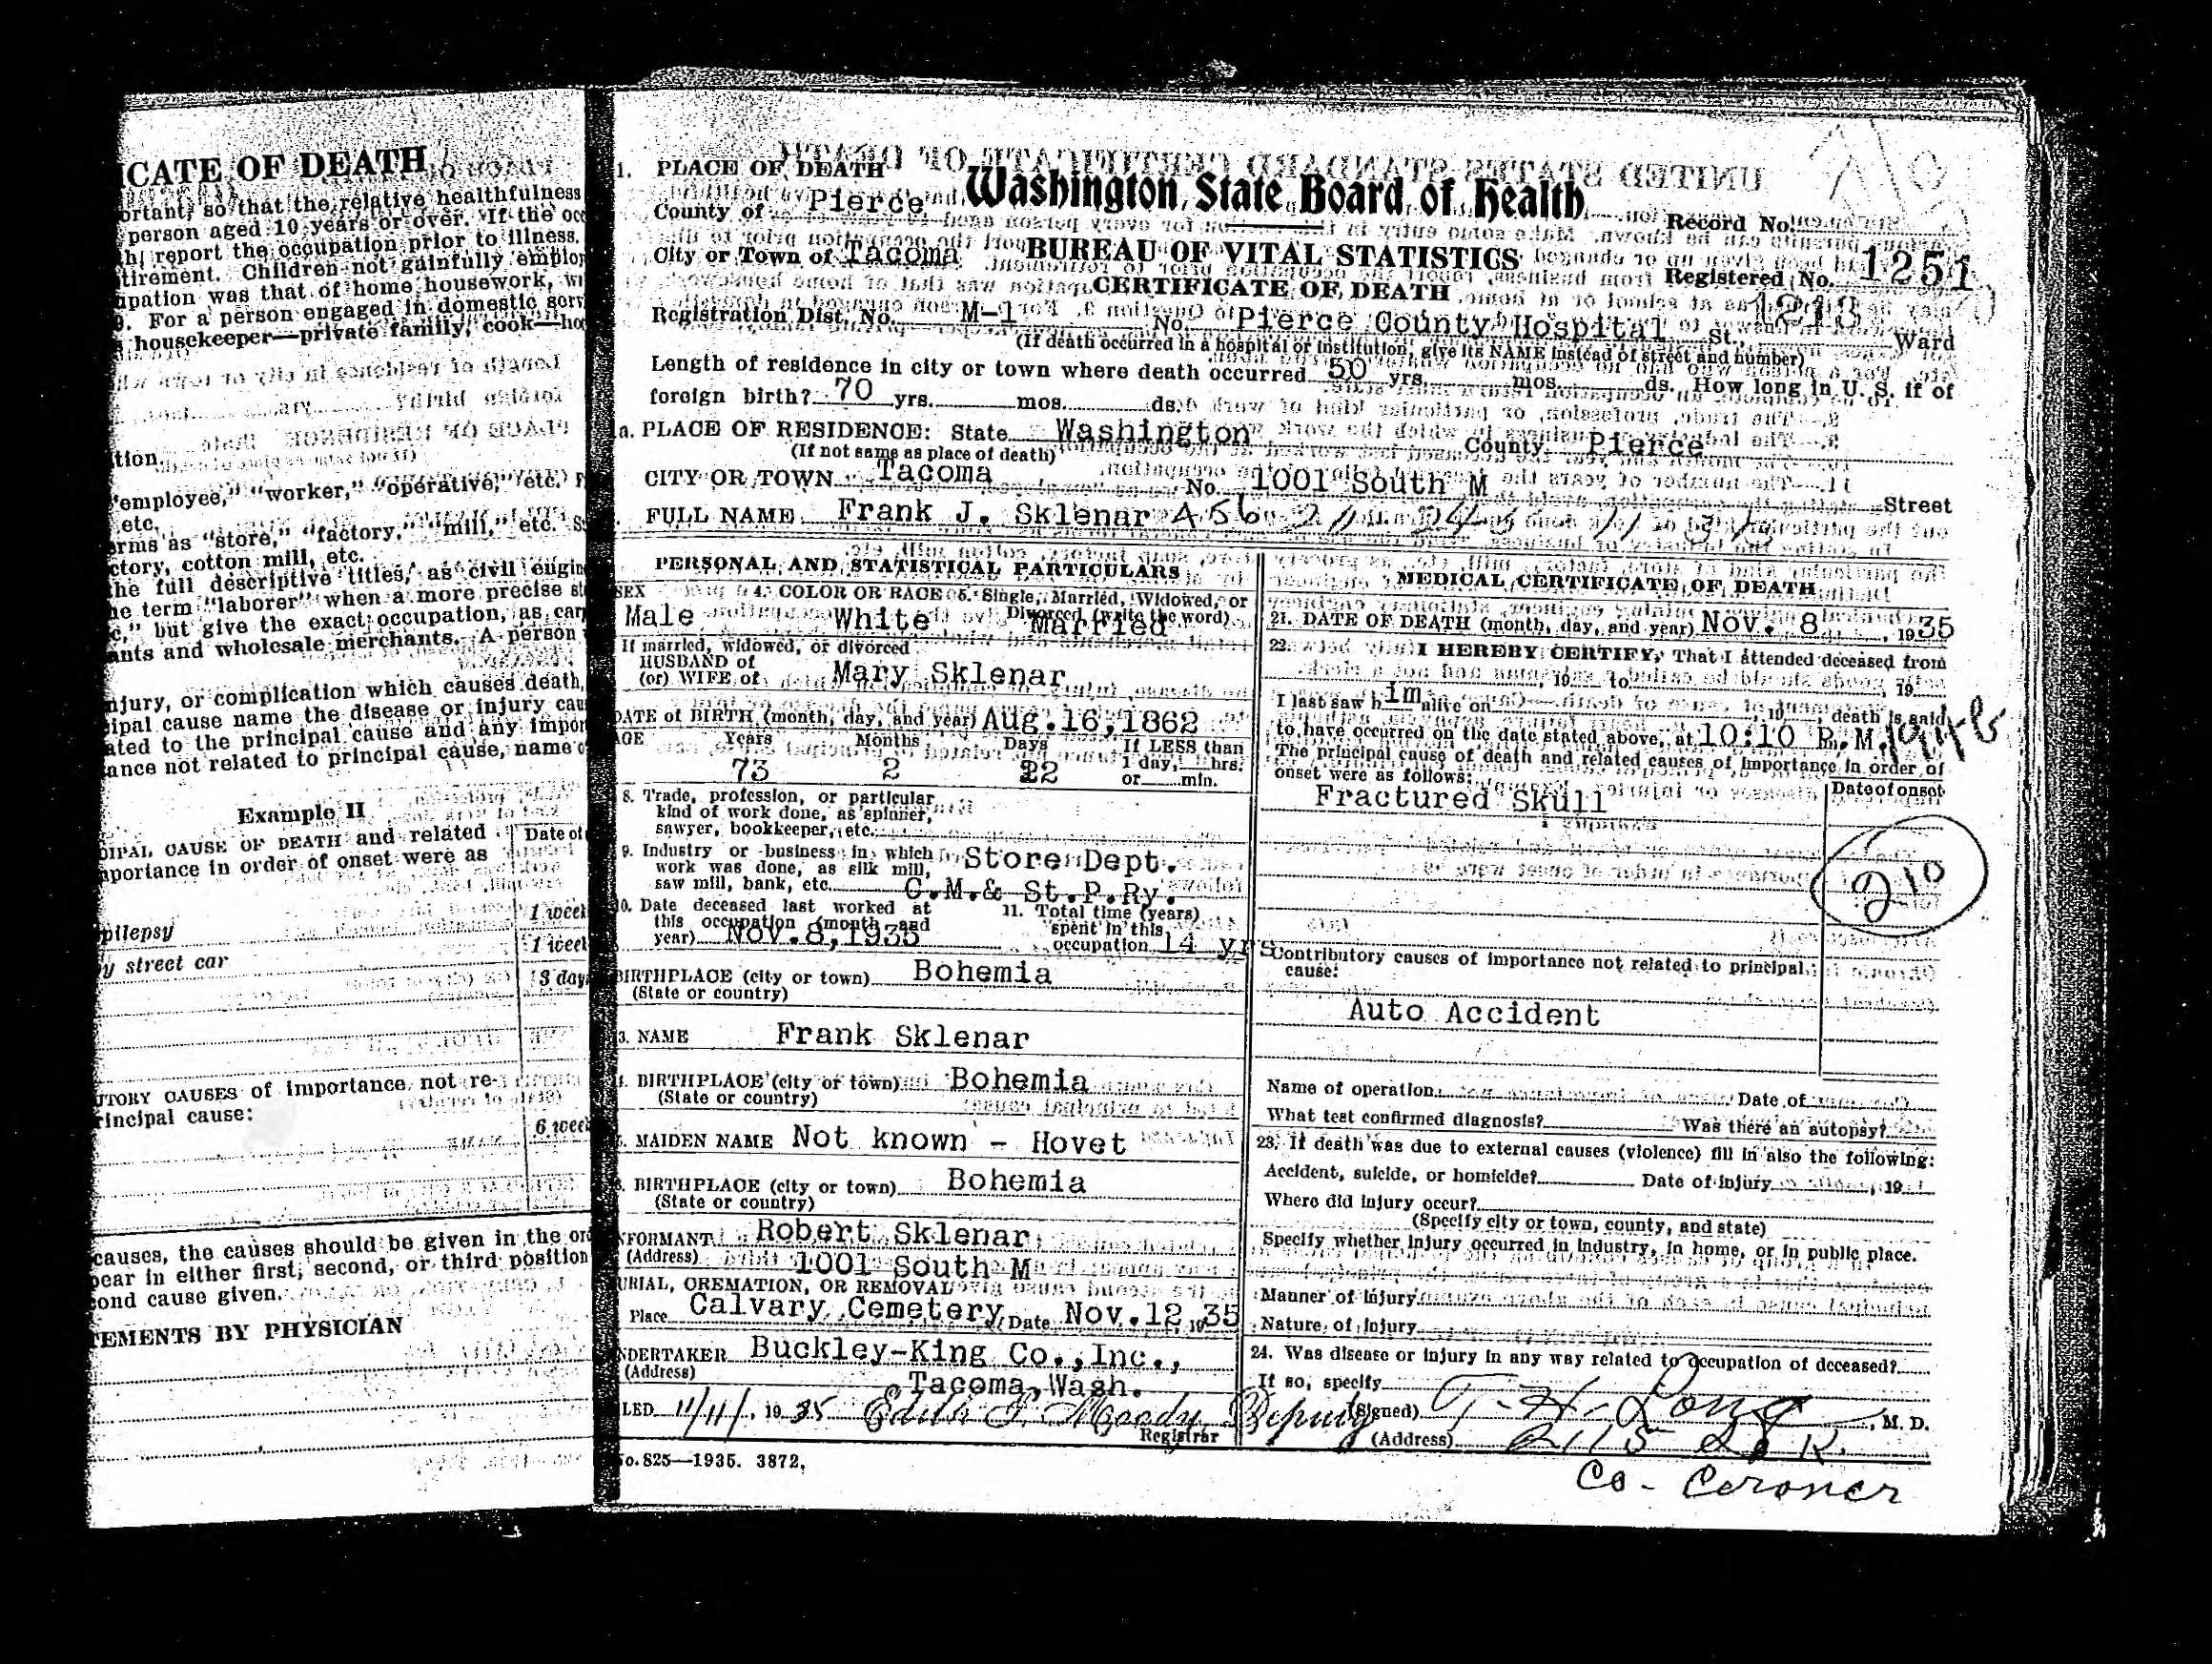 ICATE OF DEATH
ortant, so that the relative healthfulness
person aged 10 years or over. If the occ
report the occupation prior to illness.
tirement. Children not gainfully employ
upation was that of home housework, wr
For a person engaged in domestic serv
housekeeper—private family, cook—ho
tion
"employee," "worker," "operative," etc.
etc.
erms as "store," "factory," "mill," etc.
ctory, cotton mill, etc.
the full descriptive titles, as civil engin
he term "laborer" when a more precise st
c," but give the exact occupation, as carp
ants and wholesale merchants. A person
njury, or complication which causes death,
ipal cause name the disease or injury cau
ated to the principal cause and any impor
ance not related to principal cause, name
Example II
CIPAL CAUSE OF DEATH and related
mportance in order of onset were as
Date of
1 week
pilepsy
1 week
y street car
3 day
UTORY CAUSES of importance not re-
rincipal cause:
6 week
causes, the causes should be given in the ord
pear in either first, second, or third position
cond cause given.
TEMENTS BY PHYSICIAN
1. PLACE OF DEATH
Washington State Board of Health
County of Pierce
Record No.
City or Town of Tacoma
BUREAU OF VITAL STATISTICS
Registered No. 1251
CERTIFICATE OF DEATH
1213
Registration Dist. No. M-1 No. Pierce County Hospital St., Ward
(If death occurred in a hospital or institution, give its NAME instead of street and number)
Length of residence in city or town where death occurred 50 yrs. mos. ds. How long in U. S. if of
foreign birth? 70 yrs. mos. ds.
a. PLACE OF RESIDENCE: State Washington County Pierce
(If not same as place of death)
CITY OR TOWN Tacoma No. 1001 South M Street
FULL NAME Frank J. Sklenar
PERSONAL AND STATISTICAL PARTICULARS
SEX 4. COLOR OR RACE 5. Single, Married, Widowed, or
Divorced (write the word)
Male White Married
If married, widowed, or divorced
HUSBAND of
(or) WIFE of Mary Sklenar
DATE of BIRTH (month, day, and year) Aug.16,1862
AGE Years Months Days If LESS than
1 day, hrs.
73 2 22 or min.
8. Trade, profession, or particular
kind of work done, as spinner,
sawyer, bookkeeper, etc.
9. Industry or business in which
work was done, as silk mill,
saw mill, bank, etc.
Store Dept.
C.M.& St.P.Ry.
10. Date deceased last worked at
this occupation (month and
year) Nov.8,1935
11. Total time (years)
spent in this
occupation 14 yrs
BIRTHPLACE (city or town) Bohemia
(State or country)
3. NAME Frank Sklenar
BIRTHPLACE (city or town) Bohemia
(State or country)
MAIDEN NAME Not known - Hovet
BIRTHPLACE (city or town) Bohemia
(State or country)
NFORMANT Robert Sklenar
(Address) 1001 South M
URIAL, CREMATION, OR REMOVAL
Place Calvary Cemetery Date Nov.12 1935
NDERTAKER Buckley-King Co.,Inc.,
(Address) Tacoma,Wash.
LED 11/11/, 1935 Edith S. Moody, Deputy
Registrar
No. S25—1935. 3872.
MEDICAL CERTIFICATE OF DEATH
21. DATE OF DEATH (month, day, and year) Nov. 8, 1935
22. I HEREBY CERTIFY, That I attended deceased from
, 19 to , 19
I last saw him alive on , 19 , death is said
to have occurred on the date stated above, at 10:10 P.M.
The principal cause of death and related causes of importance in order of
onset were as follows:
Date of onset
Fractured Skull
210
Contributory causes of importance not related to principal
cause:
Auto Accident
Name of operation Date of
What test confirmed diagnosis? Was there an autopsy?
23. If death was due to external causes (violence) fill in also the following:
Accident, suicide, or homicide? Date of injury , 19
Where did injury occur?
(Specify city or town, county, and state)
Specify whether injury occurred in industry, in home, or in public place.
Manner of injury
Nature of injury
24. Was disease or injury in any way related to occupation of deceased?
If so, specify
(Signed) T. H. Long, M. D.
(Address)
Co - Coroner